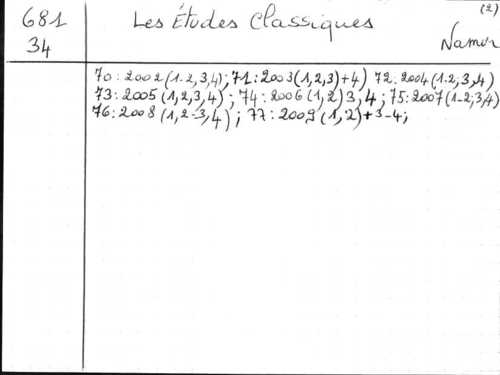 681 Les Études Classiques (2)
34 Namur
70:2002(1-2,3,4); 71:2003(1,2,3)+4) 72:2004(1-2,3,4)
73:2005(1,2,3,4); 74:2006(1,2)3,4; 75:2007(1-2,3,4)
76:2008(1,2-3,4); 77:2009(1,2)+3-4;